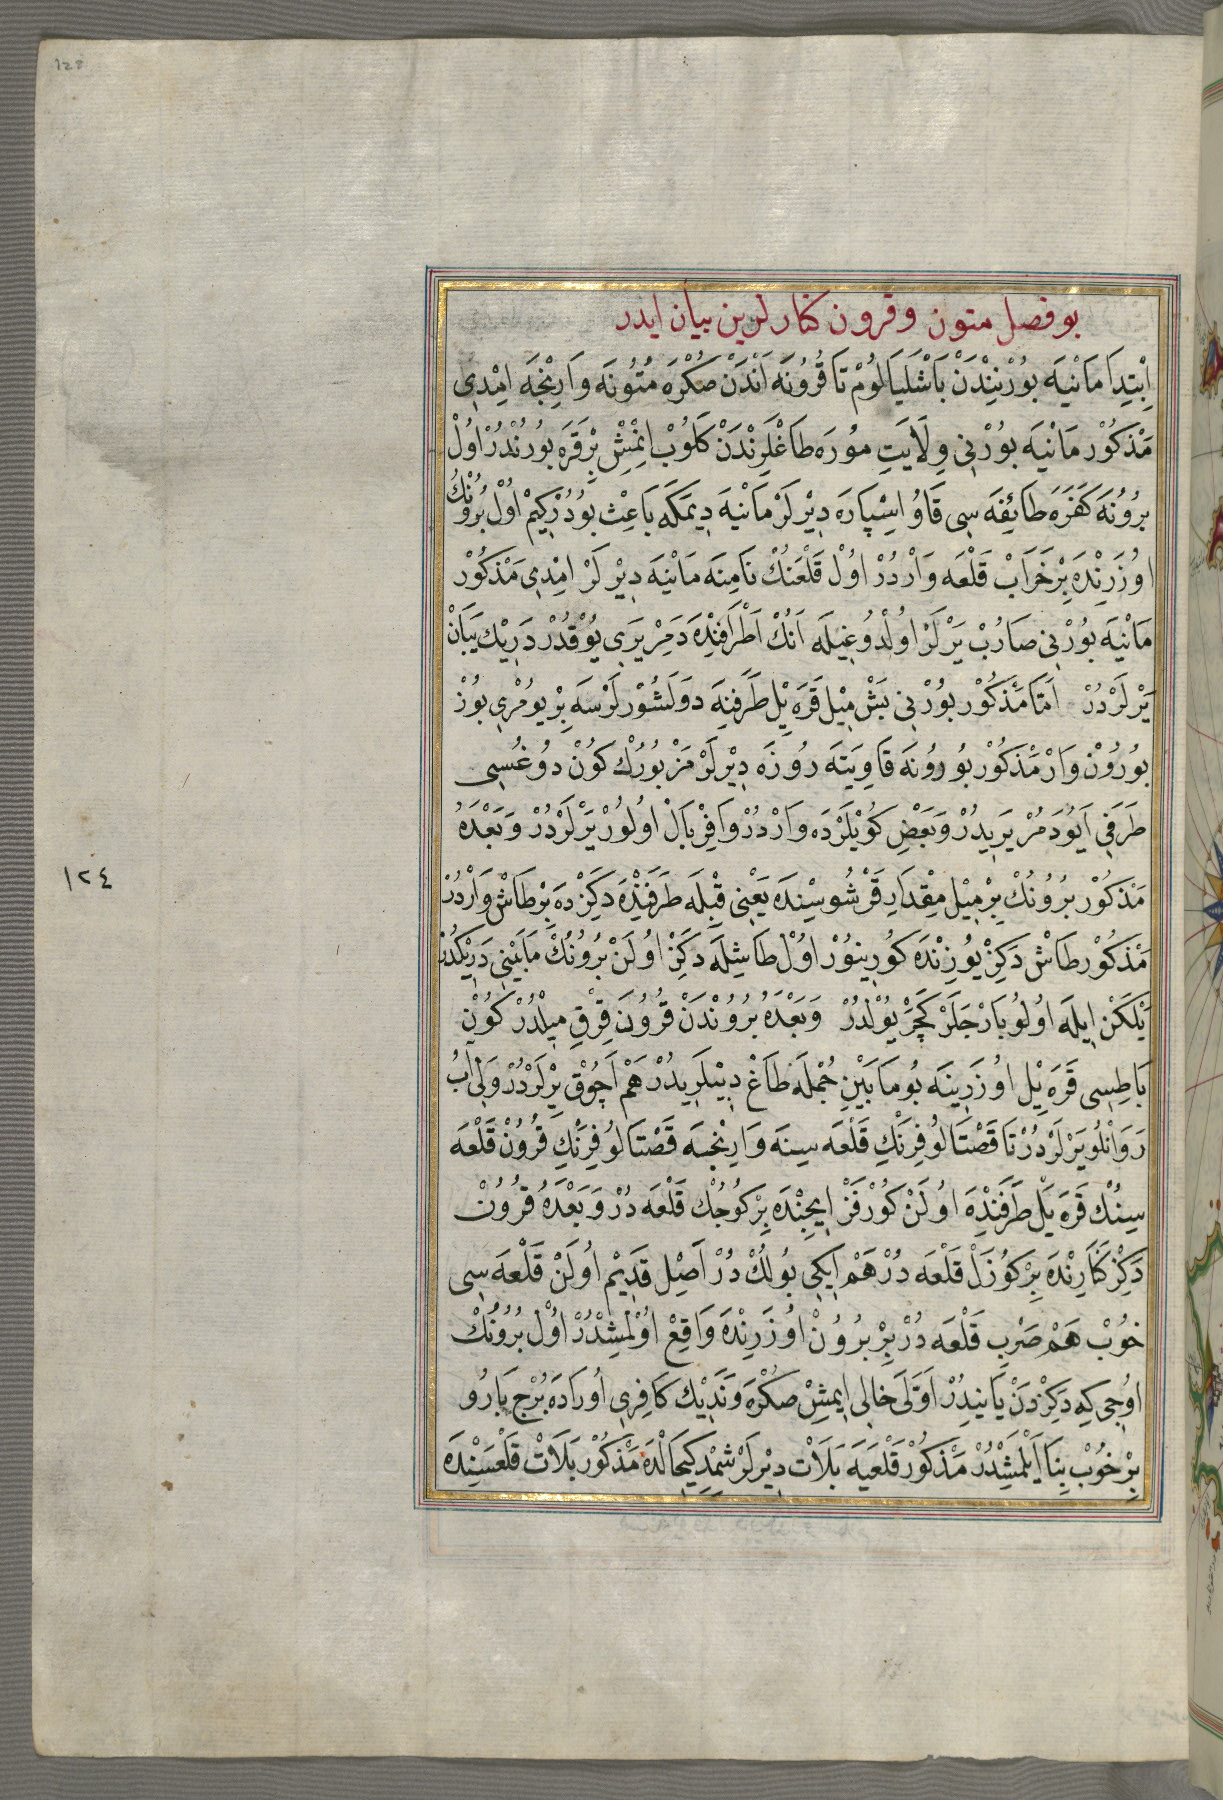 128
بو فصل متون و قرون كنارلرين بيان ايدر
اِبْتِدَا مَانْيَه بُورْنِنْدَنْ بَاشْلَيَالُومْ تَا قُرُونَه اَنْدَنْ صُكْرَه مُتُونَه وَارِنْجَه اِمْدِي
مَذْكُورْ مَانْيَه بُورْنِي وِلَايَتِ مُورَه طَاغْلَرِنْدَنْ كَلُوبْ اِنْمِشْ بِرْ قَرَه بُورُنْدُرْ اُولْ
بُرُونَه كَفَرَه طَائِفَه سِى قَاوُ اِسْپَارَه دِيرْلَرْ مَانْيَه دِيمَكَه بَاعِثْ بُودُرْكِيمْ اُولْ بُرُونُكْ
اُوزَرِنْدَه بِرْ خَرَابْ قَلْعَه وَارْدُرْ اُولْ قَلْعَنُكْ نَامِنَه مَانْيَه دِيرْلَرْ اِمْدِي مَذْكُورْ
مَانْيَه بُورْنِي صَارُبْ يَرْلَرْ اُولْدُوغِيلَه اَنُكْ اَطْرَافِنْدَه دَمِرْ يَرِي يُوقْدُرْ دَرِيكْ يَبَانْ
يَرْلَرْدُرْ اَمَّا مَذْكُورْ بُورْنِي بَشْ مِيلْ قَرَه يِلْ طَرَفِنَه دَوْلَشُورْلَرْسَه بِرْ يُومْرِي بُوزْ
بُورُونْ وَارْ مَذْكُورْ بُورُونَه قَاوِيَتَه رُوزَه دِيرْلَرْ مَزْبُورُكْ كُونْ دُوغُسِى
طَرَفِي اَيُو دَمُرْ يَرِيدُرْ وَبَعْضِ كُويْلَرْدَه وَارْدُرْ وَافِرْ بَالْ اُولُورْ يَرْلَرْدُرْ وَبَعْدَهُ
مَذْكُورْ بُرُونُكْ بِرْ مِيلْ مِقْدَارِ قَرْشُوسِنْدَه يَعْنِي قِبْلَه طَرَفِنْدَه دَكِزْدَه بِرْ طَاشْ وَارْدُرْ
١٢٤
مَذْكُورْ طَاشْ دَكِزْ يُوزِنْدَه كُورِينُورْ اُولْ طَاشِلَه دَكِزْ اُولَنْ بُرُونُكْ مَابَيْنِي دَرِيْكْدُرْ
يَلْكَنْ اِيلَه اُولُو بَارْجَلَرْ كَچَرْ يُولْدُرْ وَبَعْدَهُ بُرُونْدَنْ قُرُونَه قِرْقِ مِيلْدُرْ كُونْ
بَاطِسِى قَرَه يِلْ اُوزَرِينَه بُو مَابَيْنِ جُمْلَه طَاغْ دِيبْلَرِيدُرْ هَمْ آچُوقْ يَرْلَرْدُرْ وَلِى آبُ
رَوَانْلُو يَرْلَرْدُرْ تَا قَصْتَالُو فِرَنْكِ قَلْعَه سِينَه وَارِنْجَه قَصْتَالُو فِرَنْكِ قُرُونْ قَلْعَه
سِنُكْ قَرَه يَلْ طَرَفَنْدَه اُولَنْ كُورْفَزْ اِيچِنْدَه بِرْ كُوجُكْ قَلْعَه دُرْ وَبَعْدَهُ قُرُونْ
دَكِزْ كَنَارِنْدَه بِرْ كُوزَلْ قَلْعَه دُرْ هَمْ اِيكِي بُولُكْ دُرْ اَصِلْ قَدِيمْ اُولَنْ قَلْعَه سِى
خُوبْ هَمْ صَرْبِ قَلْعَه دُرْ بِرْ بُرُونْ اُوزَرِنْدَه وَاقِعْ اُولْمِشْدُرْ اُولْ بُرُونُكْ
اُوجِى كِه دَكِزْدَنْ يَانِيدُرْ اَوَّلَى خَالِى اِيمِشْ صُكْرَه وَنَدِيكْ كَافِرِي اُورَادَه بُرْجِ بَارُو
بِرْ خُوبْ بِنَا اَيْلَمِشْدُرْ مَذْكُورْ قَلْعَيَه بَلَاتْ دِيرْلَرْ شِمْدِيكِيحَالْدَه مَذْكُورْ بَلَاتْ قَلْعَسِنْدَه